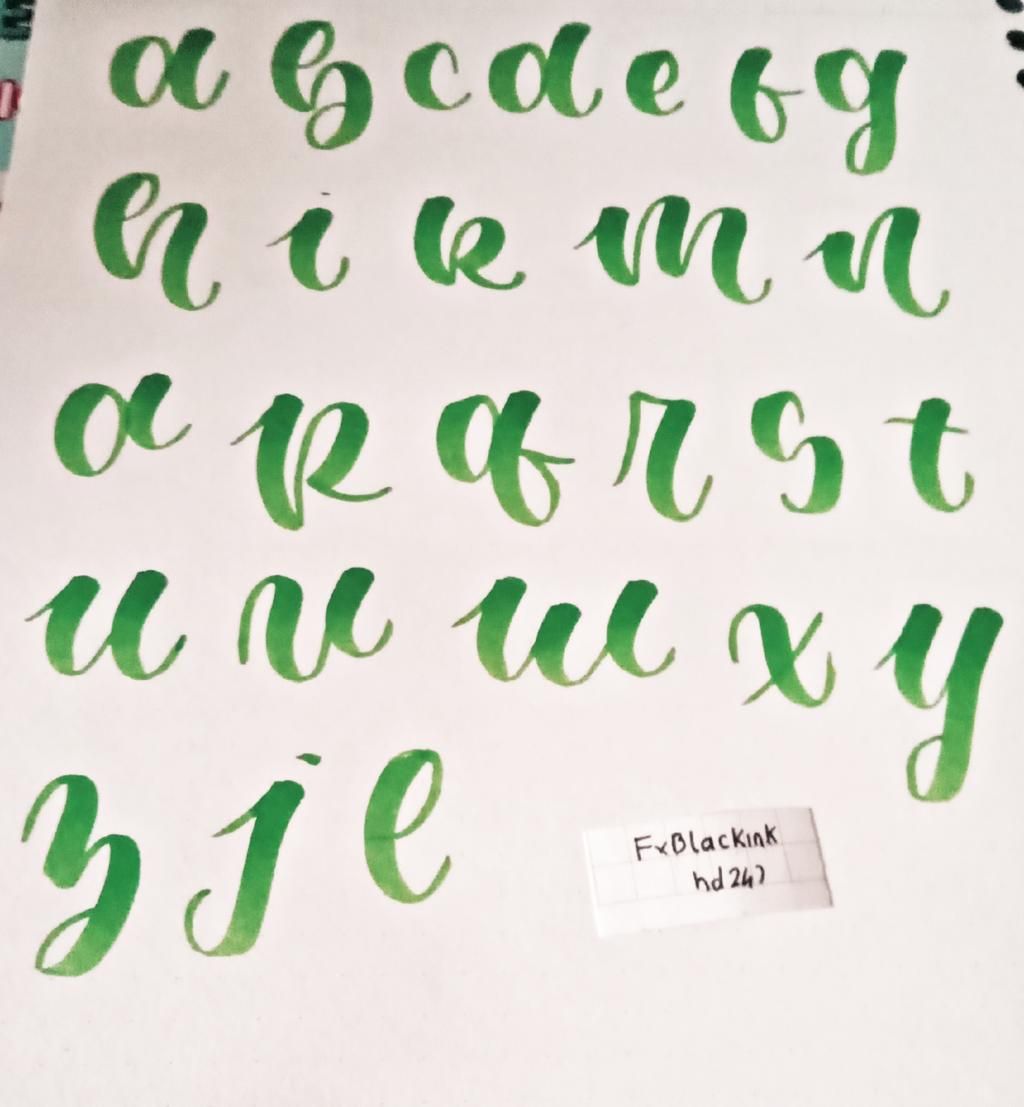 a b c d e f g
h i k m n
o p q r s t
u v w x y
z j l
FxBlackink
hd247